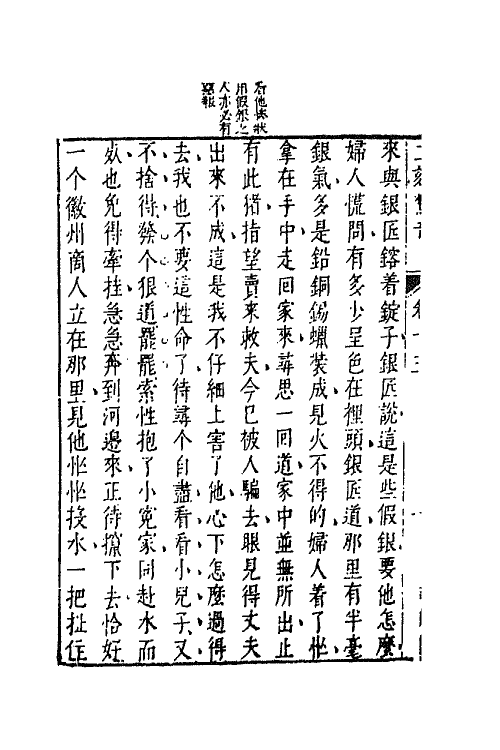 看他慘狀
用假銀之
人亦必有
惡報
二刻驚奇
卷十五
來與銀匠鎔着錠子銀匠說這是些假銀要他怎麼
婦人慌問有多少呈色在裡頭銀匠道那里有半毫
銀氣多是鉛銅錫蠟裝成見火不得的婦人着了忙
拿在手中走回家來尋思一回道家中並無所出止
有此猪指望賣來救夫今已被人騙去眼見得丈夫
出來不成這是我不仔細上害了他心下怎麼過得
去我也不要這性命了待尋个自盡看看小兒子又
不捨得發个很道罷罷索性抱了小冤家同赴水而
死也免得牽挂急急奔到河邊來正待攛下去恰好
一个徽州商人立在那里見他忙忙投水一把扯住